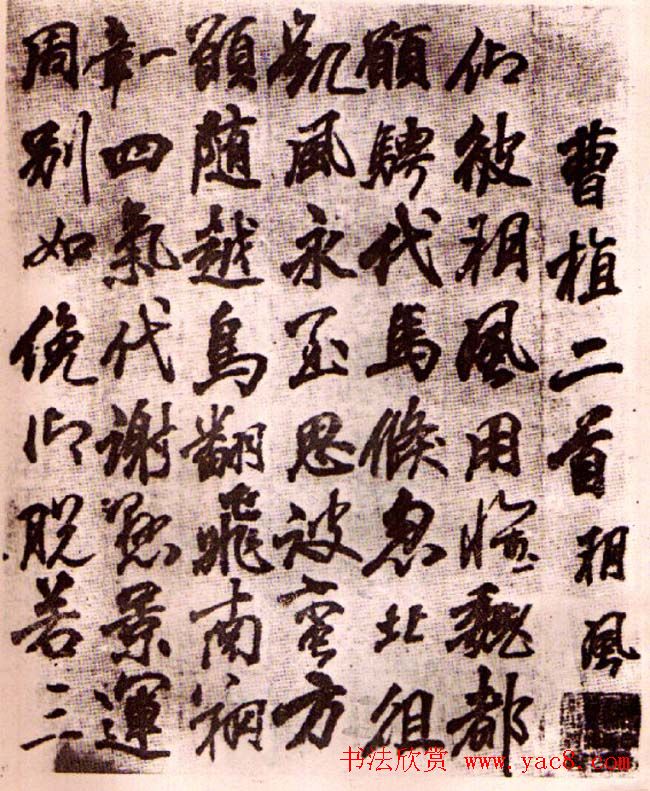 曹植二首 朔風
仰彼朔風用懷魏都
願騁代馬倏忽北徂
凱風永至思彼蠻方
願随越鳥翻飛南翔
一章四氣代謝懸景運
周別如俛仰脱若三
书法欣赏 www.yac8.com